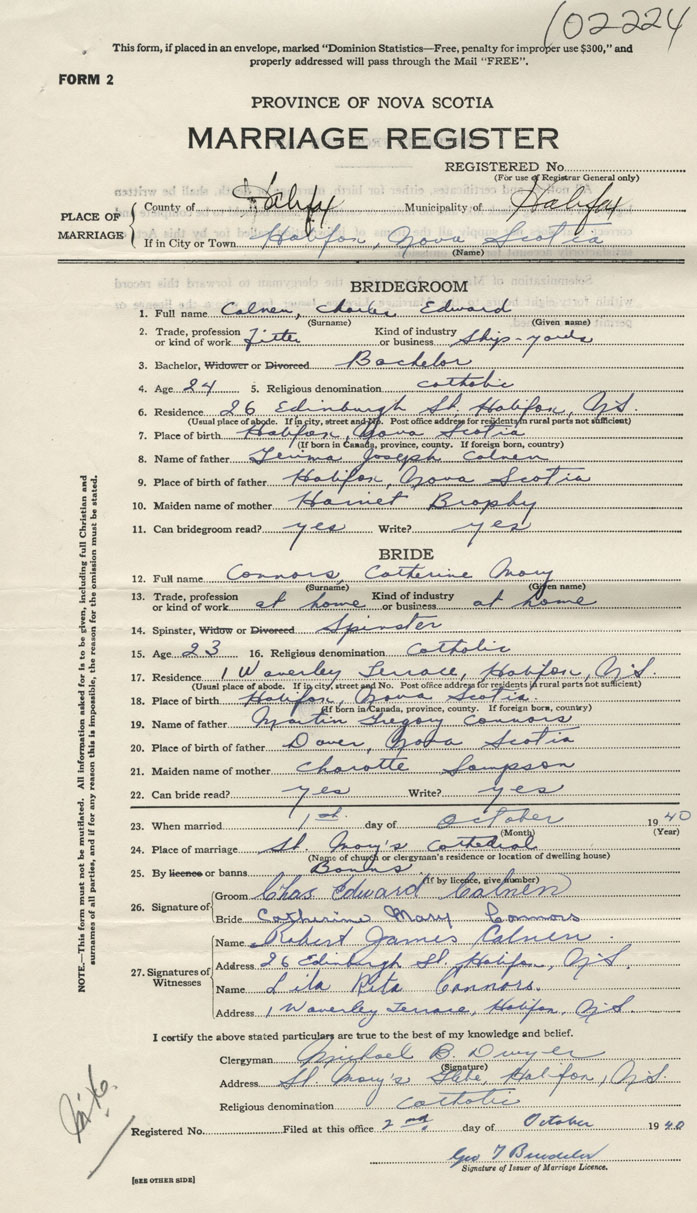 102224
This form, if placed in an envelope, marked "Dominion Statistics—Free, penalty for improper use $300," and
properly addressed will pass through the Mail "FREE".
FORM 2
PROVINCE OF NOVA SCOTIA
MARRIAGE REGISTER
REGISTERED No.
(For use of Registrar General only)
PLACE OF MARRIAGE
County of Halifax Municipality of Halifax
If in City or Town Halifax, Nova Scotia
(Name)
BRIDEGROOM
1. Full name Calnen, Charles Edward
(Surname) (Given name)
2. Trade, profession or kind of work Fitter Kind of industry or business Ship-yards
3. Bachelor, Widower or Divorced Bachelor
4. Age 24 5. Religious denomination Catholic
6. Residence 26 Edinburgh St, Halifax, N.S.
(Usual place of abode. If in city, street and No. Post office address for residents in rural parts not sufficient)
7. Place of birth Halifax, Nova Scotia
(If born in Canada, province, county. If foreign born, country)
8. Name of father Joseph Calnen
9. Place of birth of father Halifax, Nova Scotia
10. Maiden name of mother Harriet Brophy
11. Can bridegroom read? yes Write? yes
BRIDE
12. Full name Connors, Catherine Mary
(Surname) (Given name)
13. Trade, profession or kind of work at home Kind of industry or business at home
14. Spinster, Widow or Divorced Spinster
15. Age 23 16. Religious denomination Catholic
17. Residence 1 Waverley Terrace, Halifax, N.S.
(Usual place of abode. If in city, street and No. Post office address for residents in rural parts not sufficient)
18. Place of birth Halifax, Nova Scotia.
(If born in Canada, province, county. If foreign born, country)
19. Name of father Martin Gregory Connors
20. Place of birth of father Dover, Nova Scotia
21. Maiden name of mother Charotte Sampson
22. Can bride read? yes Write? yes
23. When married 1st day of October 1940
(Month) (Year)
24. Place of marriage St. Mary's Cathedral
(Name of church or clergyman's residence or location of dwelling house)
25. By licence or banns Banns
(If by licence, give number)
26. Signature of
Groom Chas Edward Calnen
Bride Catherine Mary Connors
27. Signatures of Witnesses
Name Robert James Calnen
Address 26 Edinburgh St, Halifax, N.S.
Name Lila Rita Connors.
Address 1 Waverley Terrace, Halifax, N.S
I certify the above stated particulars are true to the best of my knowledge and belief.
Clergyman Michael B. Dwyer
(Signature)
Address St. Mary's Glebe, Halifax, N.S.
Religious denomination Catholic
Registered No. Filed at this office 2nd day of October 1940
Geo
Signature of Issuer of Marriage Licence.
[SEE OTHER SIDE]
NOTE.—This form must not be mutilated. All information asked for is to be given, including full Christian and
surnames of all parties, and if for any reason this is impossible, the reason for the omission must be stated.